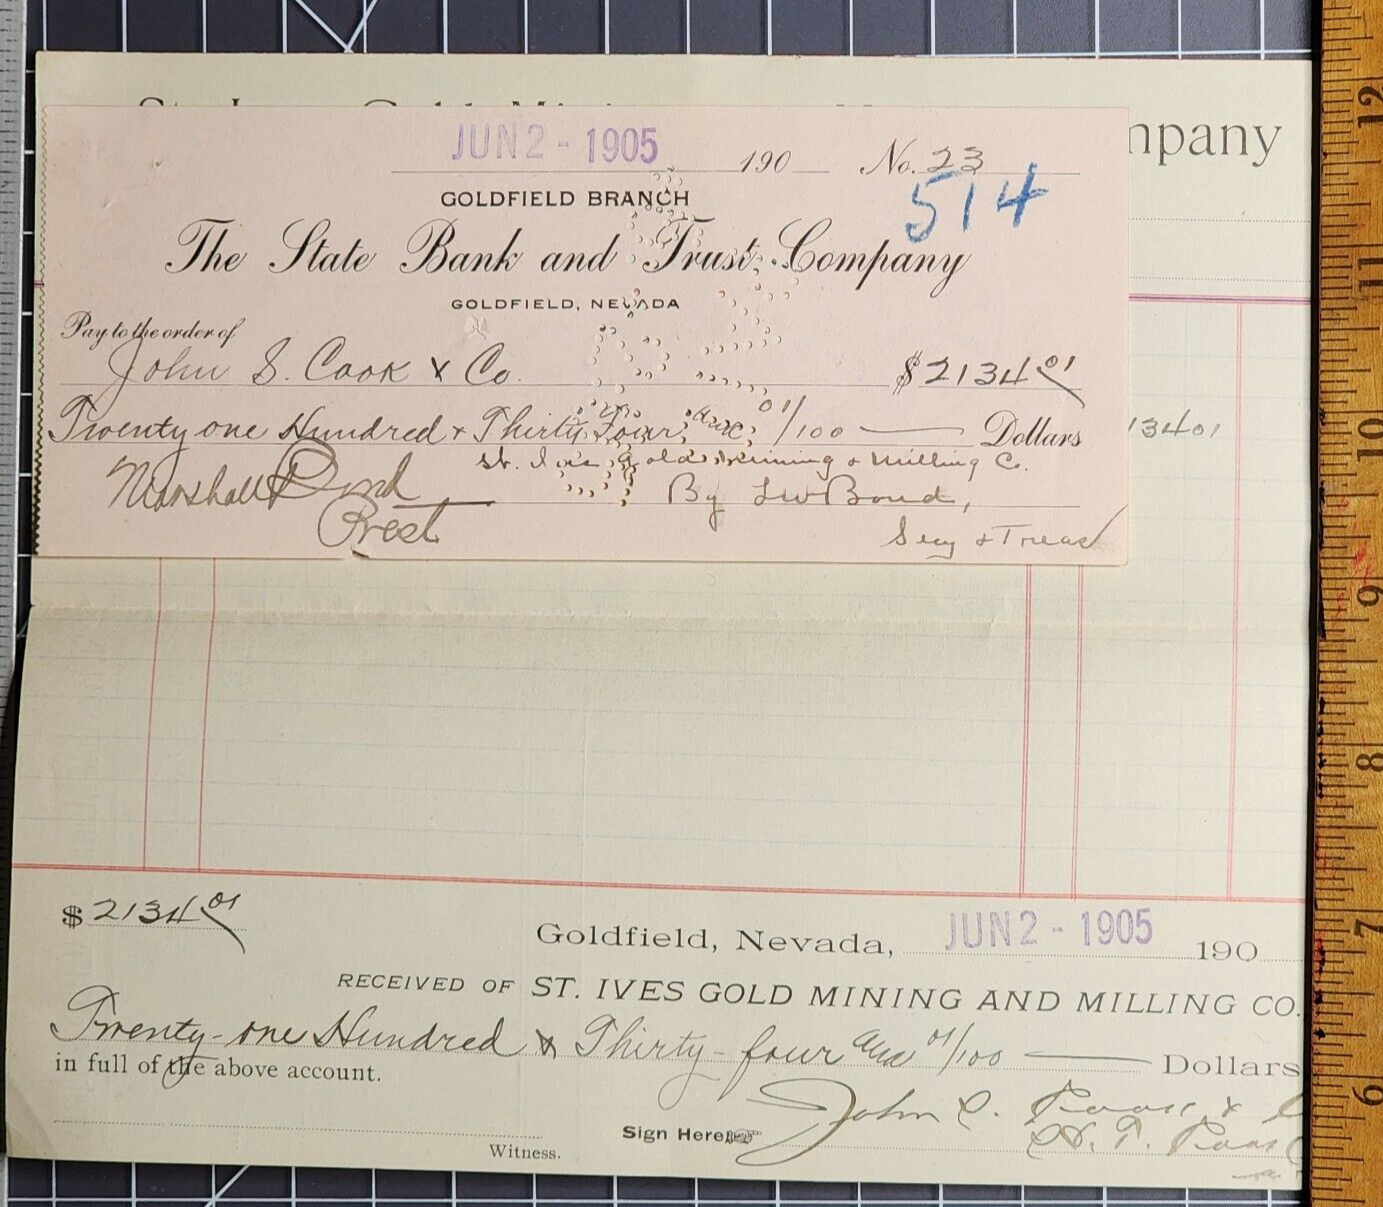 mpany
JUN 2 - 1905 190 No. 23
514
GOLDFIELD BRANCH
The State Bank and Trust Company
GOLDFIELD, NEVADA
Pay to the order of
John S. Cook & Co. $2134 01
Twenty one Hundred & Thirty Four and 01/100 Dollars
13401
St. Ives Gold Mining & Milling Co.
Marshall Bond By LW Bond,
Prest Secy & Treas
$2134 01
Goldfield, Nevada, JUN 2 - 1905 190
RECEIVED OF ST. IVES GOLD MINING AND MILLING CO.
Twenty-one Hundred & Thirty-four and 01/100 Dollars
in full of the above account.
John S. Cook &
Sign Here
Witness.
12
11
10
9
8
7
6